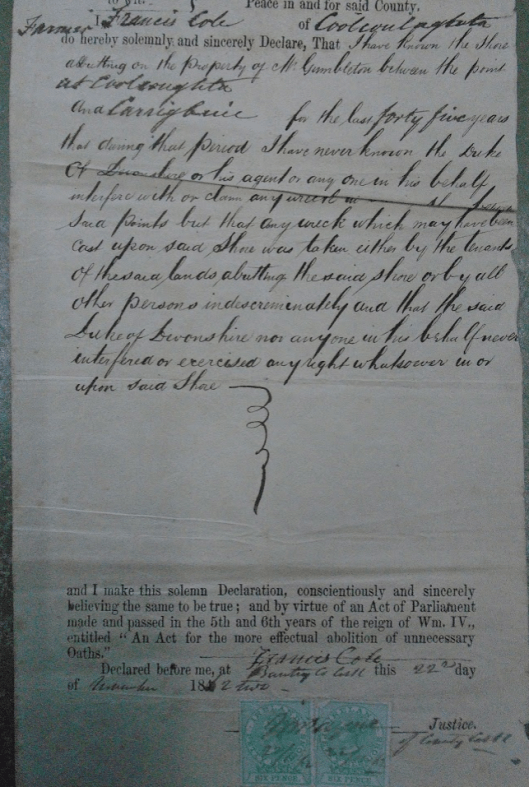 to vit. Peace in and for said County.
Farmer I Francis Cole of
do hereby solemnly and sincerely Declare, That I have known the Shore
abutting on the property of Mr. Gumbleton between the point
at
And for the last forty five years
that during that Period I have never known the Duke
Of Devonshire or his agent or any one in his behalf
interfere with or claim any wreck
Said points but that any wreck which may have been
Cast upon said Shore was taken either by the tenants
Of the said lands abutting the said shore or by all
other persons indescriminately and that the said
Duke of Devonshire nor anyone in his behalf never
interfered or exercised any right whatsoever in or
upon said Shore
and I make this solemn Declaration, conscientiously and sincerely
believing the same to be true; and by virtue of an Act of Parliament
made and passed in the 5th and 6th years of the reign of Wm. IV.,
entitled "An Act for the more effectual abolition of unnecessary
Oaths."
Francis Cole
Declared before me, at Bantry Co Cork this 22nd day
of November 18 two
Justice.
of County Cork
SIX PENCE SIX PENCE